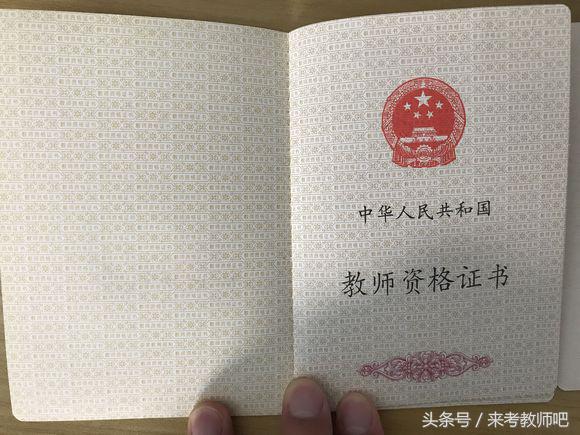 中华人民共和国
教师资格证书
头条号／来考教师吧